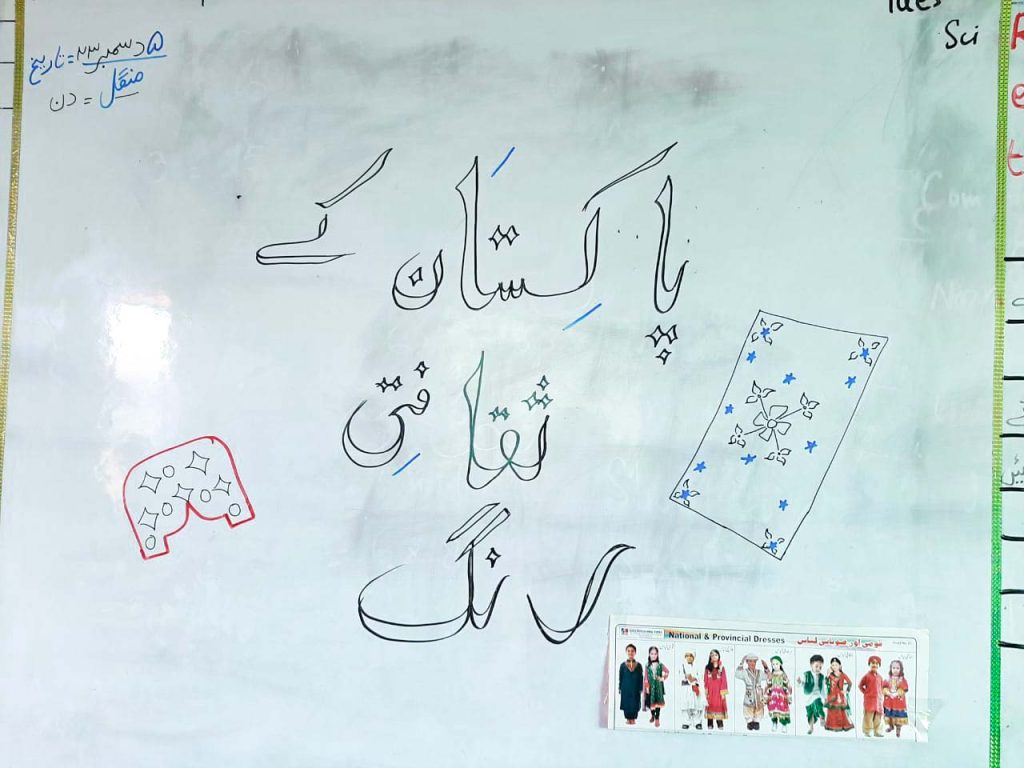 تاریخ = ۵ دسمبر ۲۳
دن = منگل
Sci
پاکِستَان کے
ثقافتیِ
رنگ
National & Provincial Dresses
قومی اور صوبائی لباس